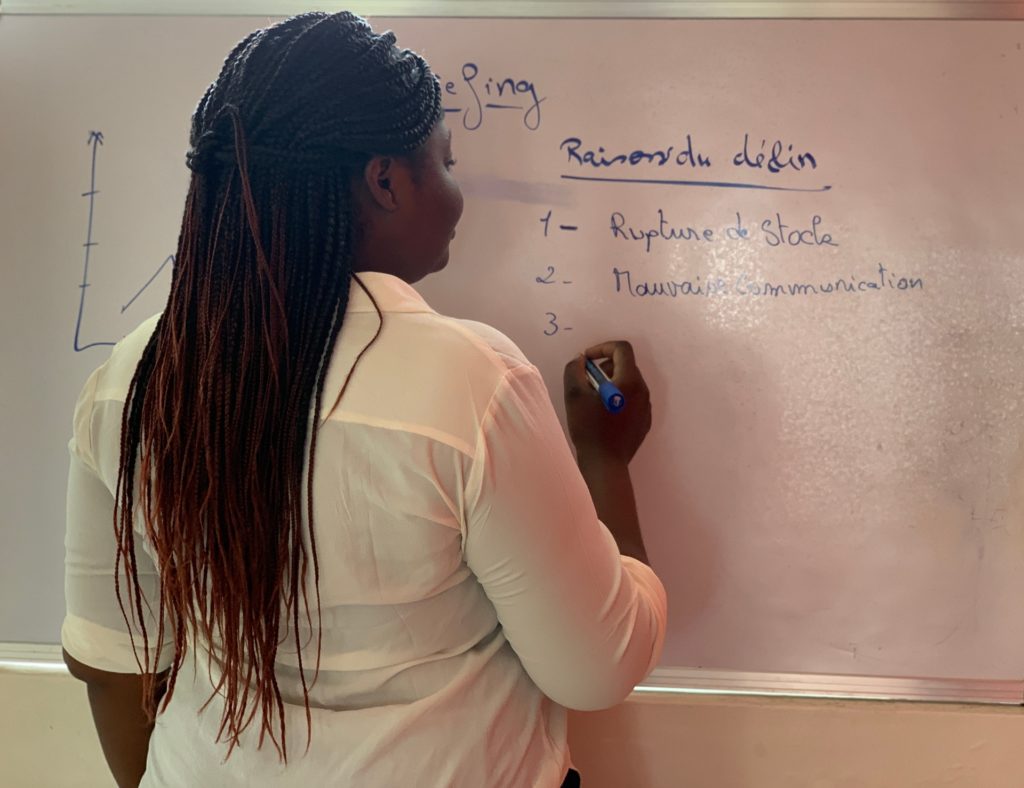 Raisons du défin
1- Rupture de Stock
2- Mauvaise Communication
3-